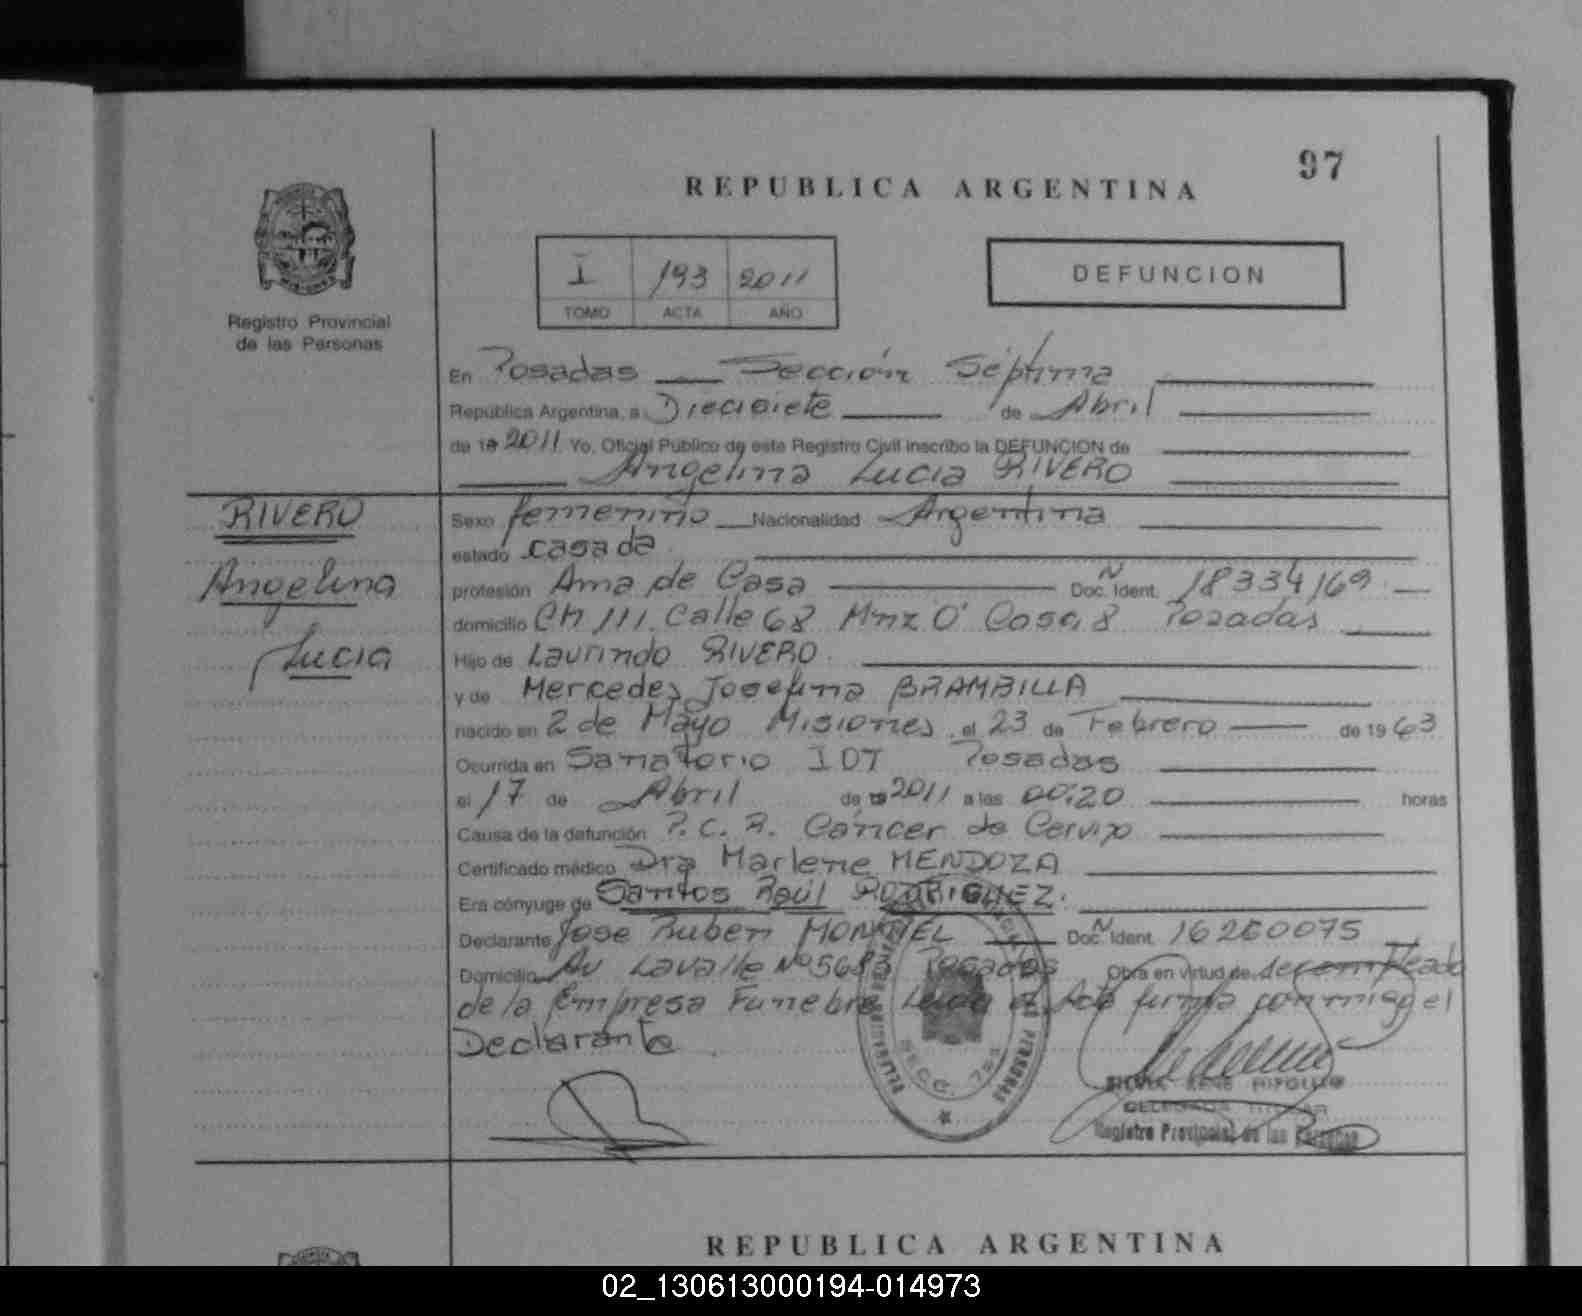 97
REPUBLICA ARGENTINA
I 193 2011
TOMO ACTA AÑO
DEFUNCION
Registro Provincial
de las Personas
En Posadas Sección Séptima
República Argentina, a Diecisiete de Abril
de 19 2011 Yo, Oficial Público de este Registro Civil inscribo la DEFUNCION de
Angelina Lucia RIVERO
RIVERO
Angelina
Lucia
Sexo femenino Nacionalidad Argentina
estado casada
profesión Ama de Casa Doc. Ident. Nº 18334169
domicilio Ch 111 Calle 68 Mnz O' Casa 8 Posadas
Hijo de Laurindo RIVERO
y de Mercedes Josefina BRAMBILLA
nacido en 2 de Mayo Misiones el 23 de Febrero de 1963
Ocurrida en Sanatorio IOT Posadas
el 17 de Abril de 19 2011 a las 00:20 horas
Causa de la defunción P.C.R. Cáncer de Cervix
Certificado médico Dra Marlene MENDOZA
Era cónyuge de Santos Raúl RODRIGUEZ.
Declarante Jose Ruben MONTIEL Doc. Ident. Nº 16260075
Domicilio Av Lavalle Nº 5683 Posadas Obra en virtud de ser empleado
de la Empresa Funebre Leida el Acta firma conmigo el
Declarante
SECC. 7ma
SILVIA RENE HIPOLITO
DELEGADA TITULAR
Registro Provincial de las Personas
REPUBLICA ARGENTINA
02_130613000194-014973